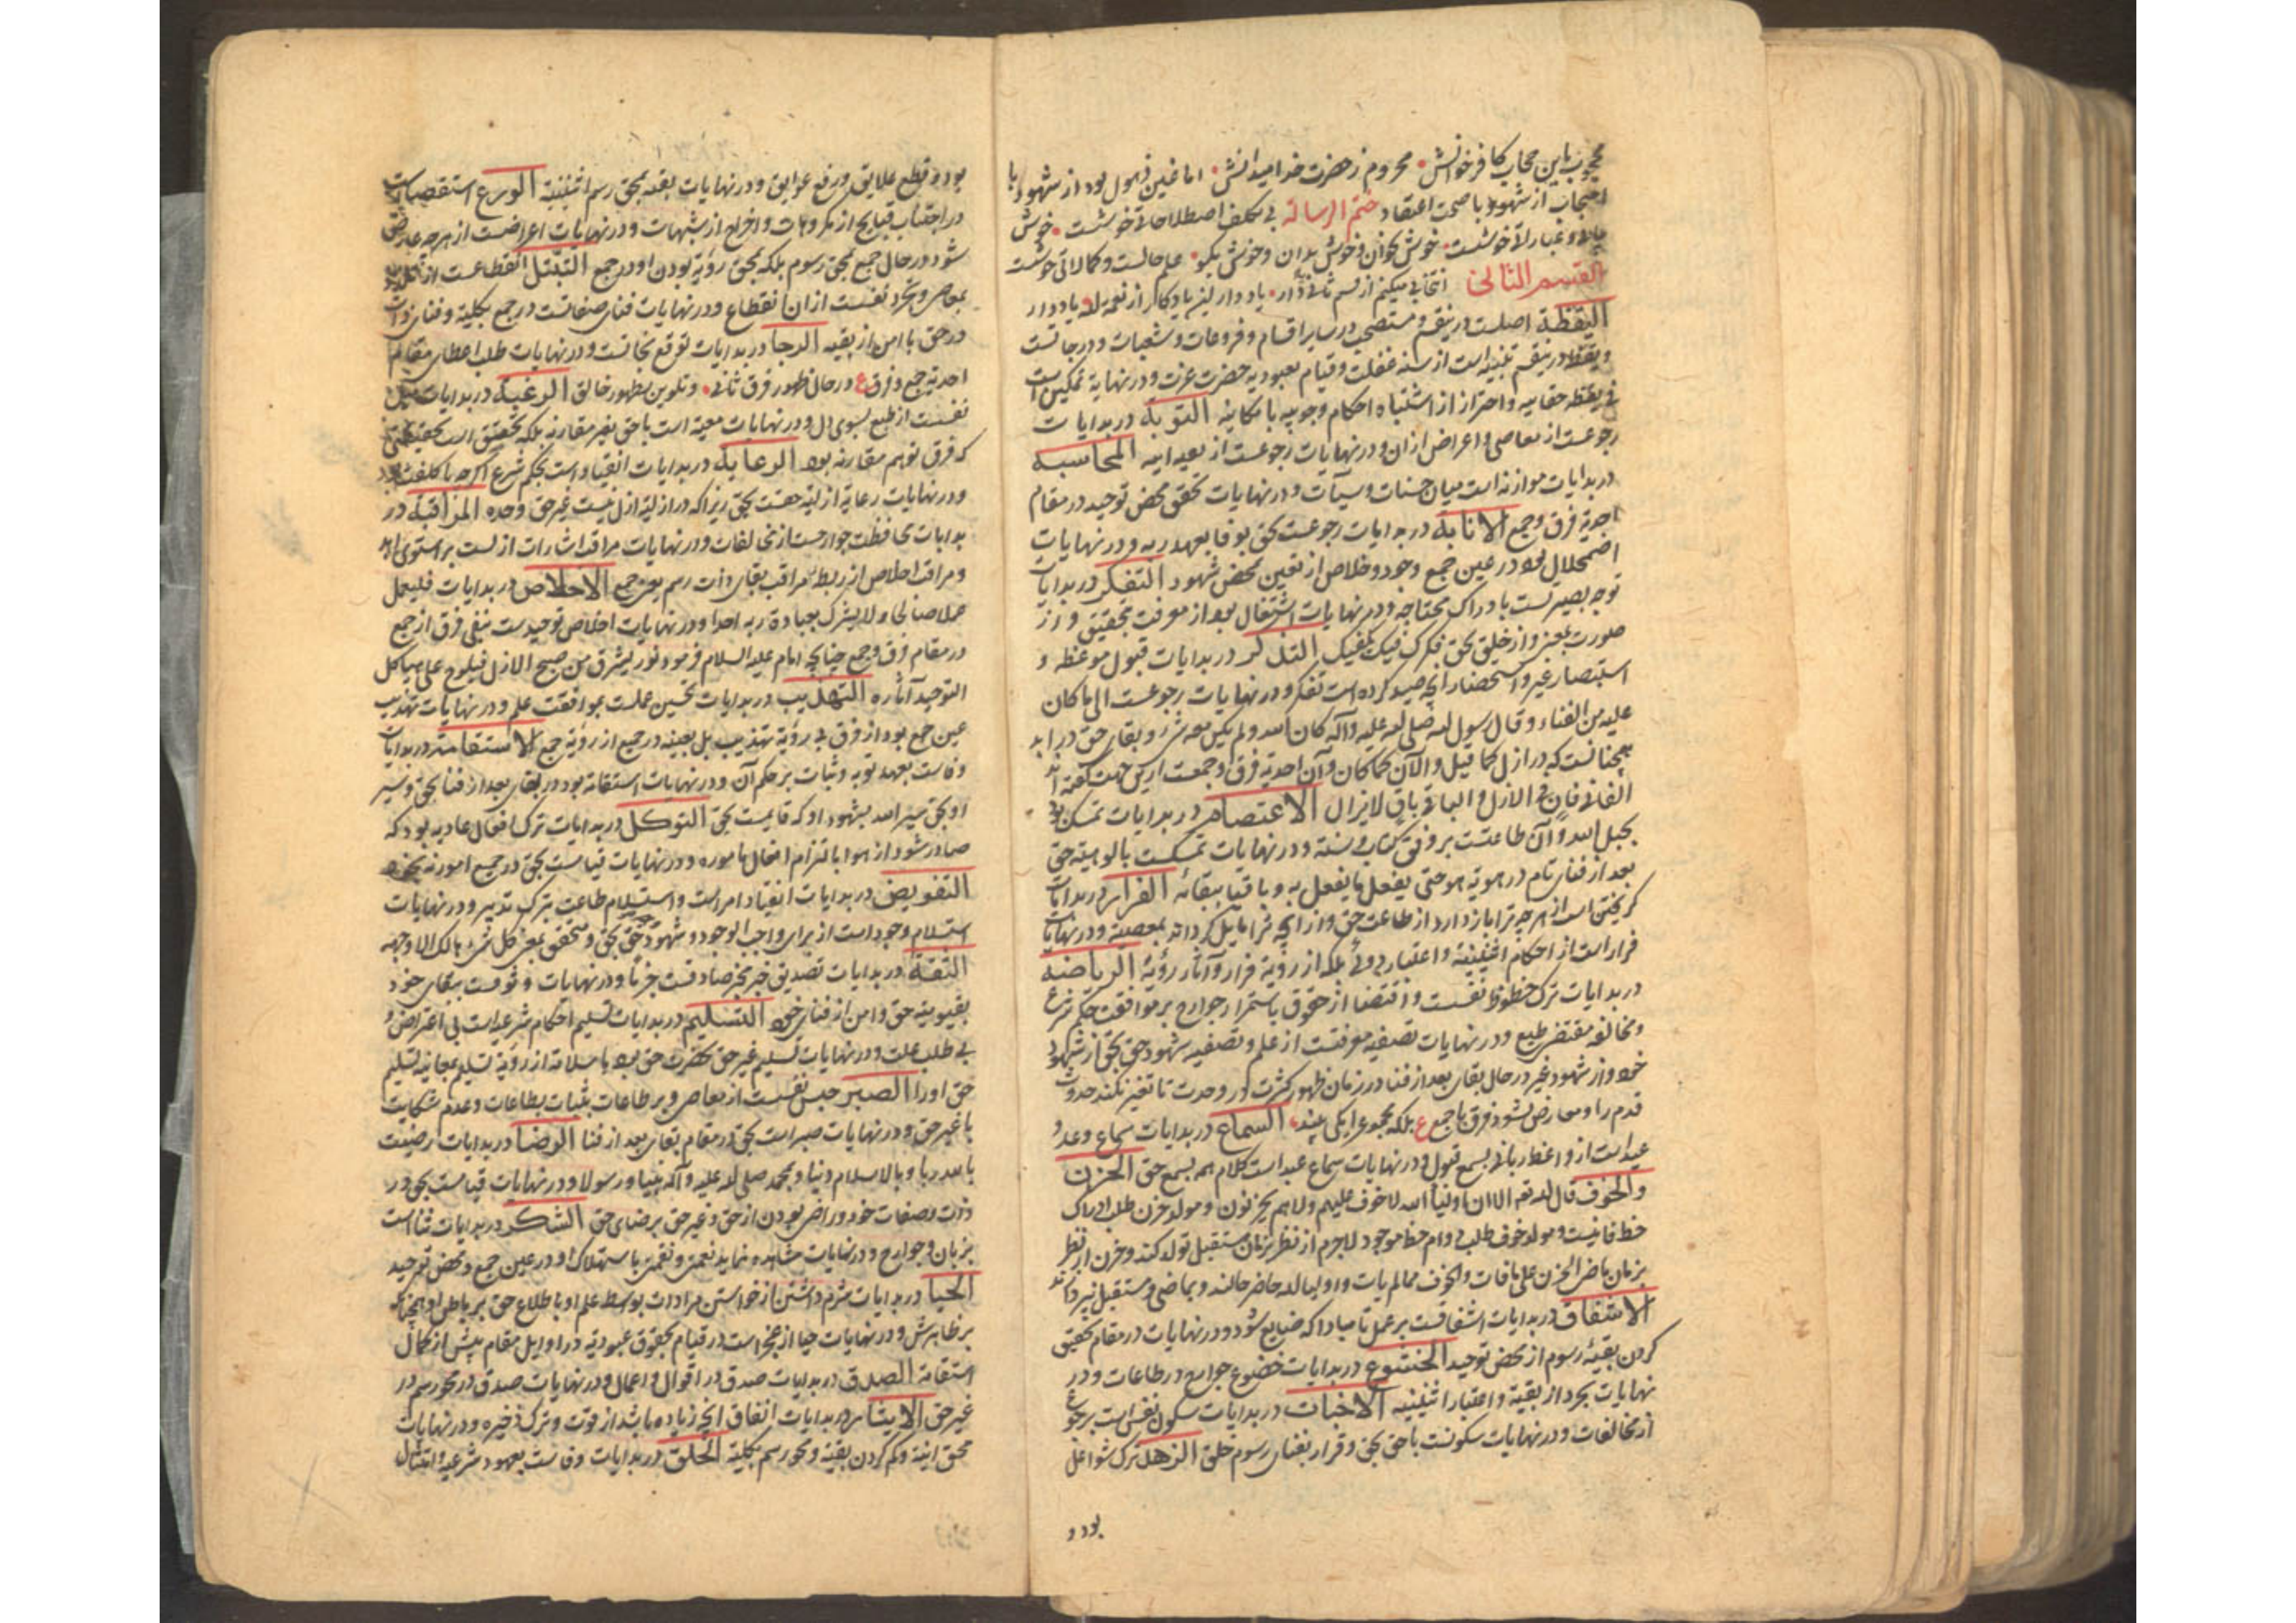 محجوب باین حجاب کافر خوانش محروم ز حضرت خدا میدانش اما غین ذهول بود از شهود با
احتجاب از شهود با صحت اعتقاد ختم الرسالة بی تکلف اصطلاحاتی خوشست خوش
عبارات خوشست خوش بخوان و خوش بدان و خوش بگو علم حالست و کمالاتی خوشست
القسم الثانی انتخابی میکنم از قسم ثانی یاد دار این یادکار از نعمة الله یاد دار
الیقظة اصلست درین قسم و مستصحب در سایر اقسام و فروعات و شعبات و درجاتست
و یقظه درین قسم تنبیه است از سنه غفلت و قیام بعبودیه حضرت عزت و در نهایة تمکین است
در یقظه حقانیه و احتراز از اشتباه احکام وجوبیه بامکانیه التوبة در بدایات
رجوعست از معاصی و اعراض ازان و در نهایات رجوعست از بقیه انیه المحاسبة
در بدایات موازنه است میان حسنات و سیآت و در نهایات تحقق محض توحید در مقام
احدیة فرق و جمع الانابة در بدایات رجوعست بحق بوفا بعهد ربه و در نهایات
اضمحلال بود در عین جمع وجود و خلاص از تعین بمحض شهود التفکر در بدایات
توجه بصیرتست بادراک محتاجه و در نهایات اشتغال بود از معرفت بتحقیق و از
صورت بمعنی و از خلیق بحق فکرک فیک یکفیک التذکر در بدایات قبول موعظه و
استبصار غیر و استحضار آنچه صید کرده است تفکر و در نهایات رجوعست الی ما کان
علیه من الفناء و قال رسول الله صلی الله علیه وآله کان الله ولم یکن معه شیء و بقای حق در ابد
همچنانست که در ازل کما قیل والآن کما کان و آن احدیة فرق و جمعست ازین جهت گفته اند
الفانی فان فی الازل و الباقی باق لا یزال الاعتصام در بدایات تمسک بود
بحبل الله و آن طاعتست بر وفق کتاب و سنة و در نهایات تمسکست بالوهیة حق
بعد از فنای تام در هویة هو حتی یفعل ما یفعل به و باقیا ببقائه الفرار در بدایات
گریختن است از هرچه ترا بازدارد از طاعت حق و از آنچه ترا مایل کرداند بمعصیة و در نهایات
فرار است از احکام اثنینیة و اعتبار دوئی بلکه از رؤیة فرار و آثار رؤیة الریاضة
در بدایات ترک حظوظ نفسست و اقتضا از حقوق باستمرار جوارح بر موافقت حکم شرع
و مخالفه مقتضی طبع و در نهایات تصفیه معرفتست از علم و تصفیه شهود حق بحق از شهود
خود و از شهود غیر در حال بقای بعد از فنا در زمان ظهور کثرت در وحدت تا تغیر نکند حدوث
قدم را و معارض نشود فرق با جمع ع بلکه مجموع را یکی بیند السماع در بدایات سماع وعد و
عید است از واعظ ربانی بسمع قبول و در نهایات سماع عبد است کلام همه بسمع حق الحزن
والخوف قال الله تعه الا ان اولیاء الله لا خوف علیهم ولا هم یحزنون و مولد حزن طلب ادراک
حظ فانیست و مولد خوف طلب دوام حظ موجود لاجرم از نظر بزمان مستقبل تولد کند و حزن از نظر
بزمان ماضی الحزن علی ما فات والخوف مما لم یات و اولیا الله حاضر حالند و بماضی و مستقبل نپردازند
الاشفاق در بدایات اشفاقست بر عمل تا مبادا که ضایع شود و در نهایات در مقام تحقیق
کردن بقیهٔ رسوم از محض توحید الخشوع در بدایات خضوع جوارح در طاعات و در
نهایات تجرد از بقیة و اعتبار اثنینیه الاخبات در بدایات سکون نفس است برجوع
از مخالفات و در نهایات سکونست با حق بحق و قرار بفنای رسوم خلق الزهد ترک شواغل
بود و
بود و قطع علایق و رفع عوایق و در نهایات بقعه بمحق رسم اثنینیة الورع استقصاست
در اجتناب قبایح از مکروهات و اخراج از شبهات و در نهایات اعراضست از هرچه عارض
شود در حال جمع بمحق رسوم بلکه بمحق رؤیة بودن او در جمع التبتل انقطاعست از تلذذ
بمعاصی و تجرد نفسست ازان انقطاع و در نهایات فنای صفاتست در جمع بکلیة و فنای ذات
در حق با امن از بقیه الرجا در بدایات توقع نجاتست و در نهایات طلب اعطای مقام
احدیة جمع و فرق ع در حال ظهور فرق ثانی و تلوین بظهور خالق الرغبة در بدایات میل
نفسست از طبع بسوی دل و در نهایات معیة است با حق بغیر مقارنه بلکه بتحقیق است بحقیقتی
که فرق توهم مقارنه بود الرعایة در بدایات انقیاد است بحکم شرع اگرچه با کلفت بود
و در نهایات رعایة ازلیة حقست بحق زیرا که در ازلیة ازل نیست غیر حق وحده المراقبة در
بدایات محافظت جوارحست از مخالفات و در نهایات مراقب اشارات ازلست بر استوای ابد
و مراقب اخلاص از ربط مراقب بقای ذات رسم بعین جمع الاخلاص در بدایات فلیعمل
عملا صالحا ولا یشرک بعبادة ربه احدا و در نهایات اخلاص توحیدست بنفی فرق از جمع
در مقام فرق و جمع چنانچه امام علیه السلام فرمود نور یشرق من صبح الازل فیلوح علی هیاکل
التوحید آثاره التهذیب در بدایات تحسین عملست بموافقت علم و در نهایات تهذیب
عین جمع بود از فرق بی رؤیة تهذیب بل بعینه در جمع از رؤیة جمع الاستقامة در بدایات
وفاست بعهد توبه و ثبات بر حکم آن و در نهایات استقامة بود در بقای بعد از فنا بحق و سیر
او بحق سیر الله بشهود او که قایمست بحق التوکل در بدایات ترک افعال عادیه بود که
صادر شود از هوا بالتزام افعال مأموره و در نهایات قیامست بحق در جمیع امور نه بخود
التفویض در بدایات انقیاد امر است و استسلام طاعت بترک تدبیر و در نهایات
استسلام وجود است از برای واجب الوجود و شهود حق بحق و متحقق بمعنی کل شیء هالک الا وجهه
الثقة در بدایات تصدیق خبر مخبر صادقست جزما و در نهایات وثوقست ببقای خود
بقیومیة حق و امن از فنای خود التسلیم در بدایات تسلیم احکام شرعیه است بی اعتراض و
بی طلب علت و در نهایات تسلیم غیر حق بحضرت حق بود با سلامة از رؤیة تسلیم بمعاینه تسلیم
حق او را الصبر حبس نفسست از معاصی و بر طاعات بثبات بطاعات و عدم شکایت
با غیر حق و در نهایات صبر است بحق در مقام بقای بعد از فنا الرضا در بدایات رضیت
بالله ربا و بالاسلام دینا و بمحمد صلی الله علیه وآله نبیا و رسولا و در نهایات قیامست بحق در
ذات و صفات خود و راضی بودن از حق و غیر حق برضای حق الشکر در بدایات ثناست
بزبان و جوارح و در نهایات مشاهده نماید نعمتی و نقمتی باستهلاک او در عین جمع و محض توحید
الحیا در بدایات شرم داشتن از خواستن مرادات بواسطه علم او باطلاع حق بر باطن او همچنانکه
بر ظاهرش و در نهایات حیا از عجز است در قیام بحقوق عبودیة در اوایل مقام پیش از کمال
استقامة الصدق در بدایات صدق در اقوال و اعمال و در نهایات صدق در محو رسم در
غیر حق الایثار در بدایات انفاق آنچه زیاده باشد از قوت و ترک ذخیره و در نهایات
محق انیة و گم کردن بقیة و محو رسم بکلیة الخلق در بدایات وفاست بعهود شرعیه و امتثال